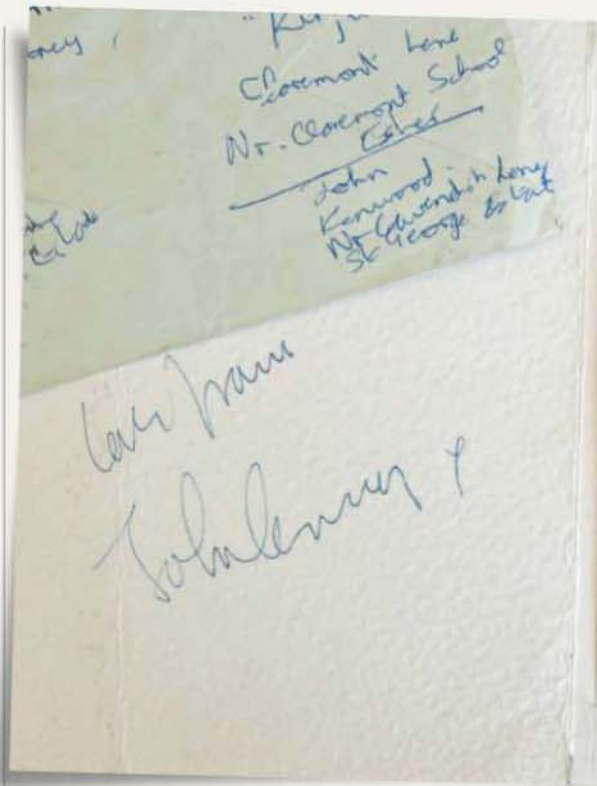 "Kinfauns"
Claremont Lane
Nr. Claremont School
Esher
John
Kenwood.
Nr Cavendish Lane
St George Estate
love from
John Lennon x